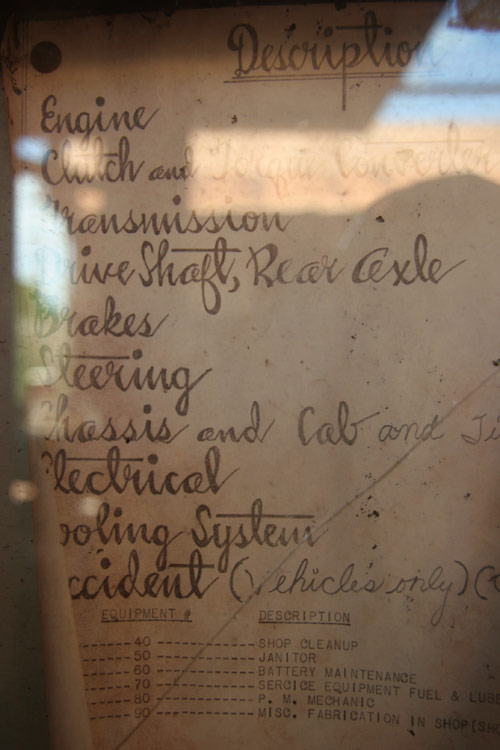 Description
Engine
Clutch and Torque Converter
Transmission
Drive Shaft, Rear Axle
Brakes
Steering
Chassis and Cab and Ti
Electrical
Cooling System
Accident (Vehicles only) (
EQUIPMENT # DESCRIPTION
40 SHOP CLEANUP
50 JANITOR
60 BATTERY MAINTENANCE
70 SERCICE EQUIPMENT FUEL & LUBE
80 P. M. MECHANIC
90 MISC. FABRICATION IN SHOP(SH